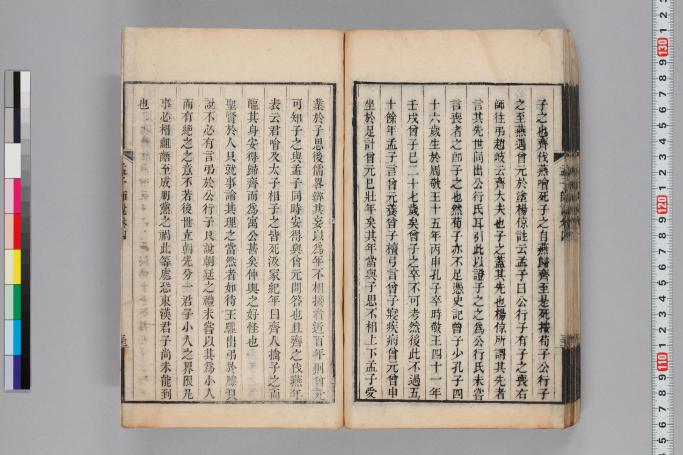 子之也齊伐燕噲死子之自燕歸齊至是死按荀子公行子
之至燕遇曾元於塗楊倞註云孟子曰公行子有子之喪右
師往弔趙岐云齊大夫也子之蓋其先也楊倞所謂其先者
言其先世尙出公行氏耳引此以證子之之爲公行氏未嘗
言喪者之卽子之也然荀子亦不足慿史記曾子少孔子四
十六歲生於周敬王十五年丙申孔子卒時敬王四十一年
壬戌曾子巳二十七歲矣曾子之卒不可考然後此不過五
十餘年孟子言曾元養曾子檀弓言曾子寢疾病曾元曾申
坐於足計曾元巳壯年矣其年當與子思不相上下孟子受
業於子思後儒畧辨其妄以爲年不相接者近百年則曾元
可知子之與孟子同時安得與曾元問答也且齊之伐燕年
表云君噲及太子相子之皆死汲冡紀年曰齊人擒子之而
醢其身安得歸齊而爲寓公甚矣仲輿之好怪也
聖賢於人只就事論其理之當然者如待王驩出弔於滕
說不必有言弔於公行子只說朝廷之禮未嘗以其爲小人
而有絕之之意不若後世立朝先分一君子小人之界限凡
事必相齟齬至成朋黨之禍此等處恐東漢君子尙未能到
也